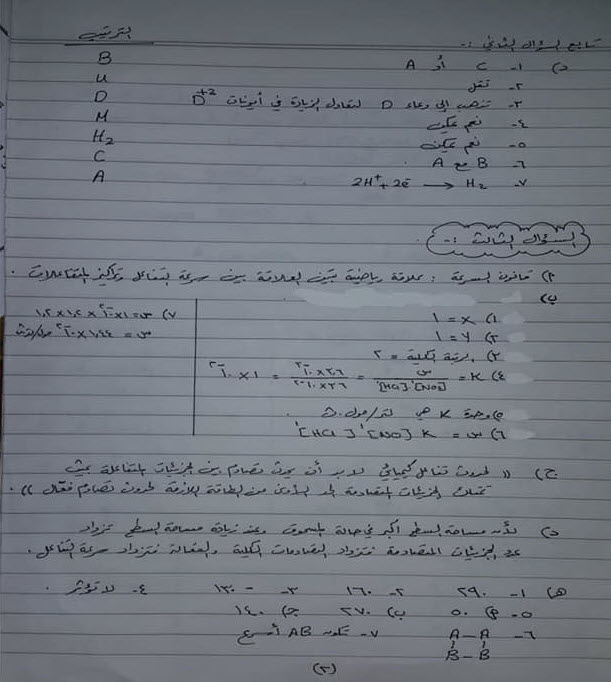 تابع السؤال الثاني :-
الترتيب
B
U
D
M
H₂
C
A
د) ١- C أو A
٢- تقل
٣- تذهب إلى وعاء D لتعادل الزيادة في أيونات D⁺²
٤- نعم يمكن
٥- نعم يمكن
٦- B مع A
٧- 2H⁺ + 2e⁻ → H₂
السؤال الثالث :-
٢) قانون السرعة : علاقة رياضية تبين العلاقة بين سرعة التفاعل وتراكيز المتفاعلات .
ب)
١) x = ١
٢) y = ١
٣) الرتبة الكلية = ٢
٤) K = س / [HCl]¹[NO₂]¹ = ٣,٦×١٠⁻² / ٣,٦×١٠⁻² = ١×١٠⁻²
٥) وحدة K هي لتر/مول.ث
٦) س = K [NO]¹ [HCl]¹
٧) س = ١×١٠⁻² × ١,٢ × ١,٢
س = ١,٤٤×١٠⁻² مول/لتر.ث
ج) (( لحدوث تفاعل كيميائي لا بد أن يحدث تصادم بين الجزيئات المتفاعلة بحيث
تمتلك الجزيئات المتصادمة الحد الأدنى من الطاقة اللازمة لحدوث تصادم فعّال )) .
د) لأنه مساحة السطح أكبر في حالة المسحوق وعند زيادة مساحة السطح تزداد
عدد الجزيئات المتصادمة فتزداد التصادمات الكلية والفعالة فتزداد سرعة التفاعل .
هـ) ١- ٢٩٠ ٢- ١٦٠ ٣- -١٣٠ ٤- لا تؤثر .
٥- ٢) ٥٠ ب) ٢٧٠ ج) ١٤٠
٦- A–A ٧- تكون AB أسرع
B–B
(٣)